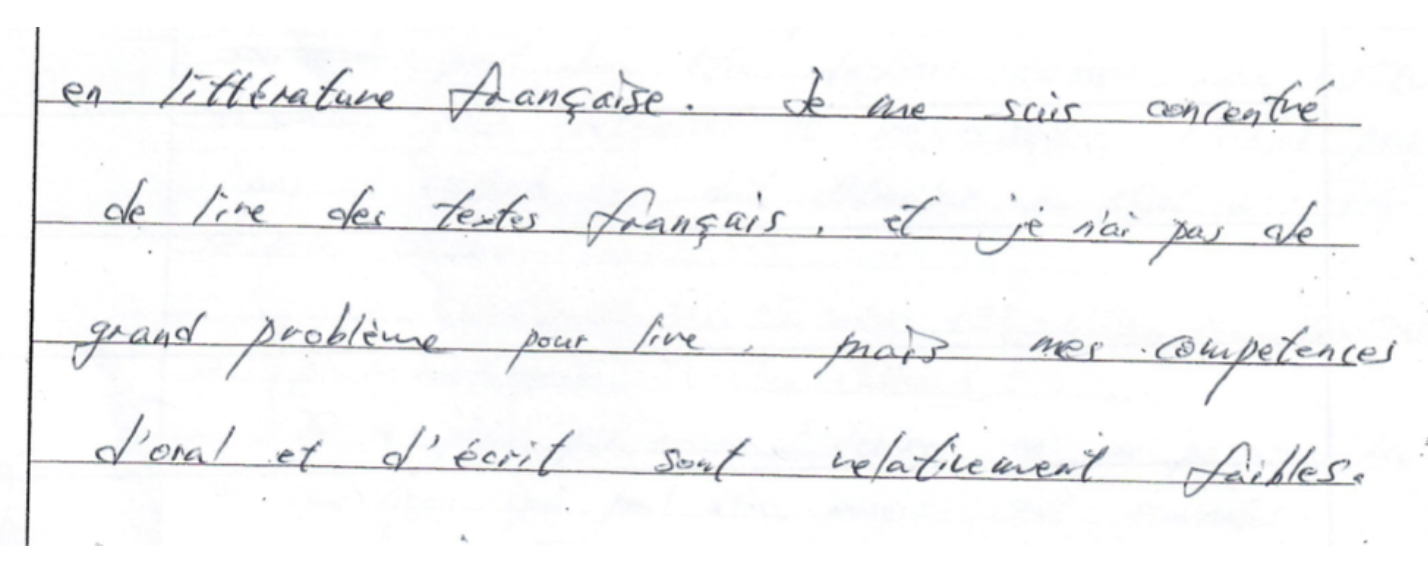 en littérature française. Je me suis concentré
de lire des textes français, et je n'ai pas de
grand problème pour lire, mais mes competences
d'oral et d'écrit sont relativement faibles.